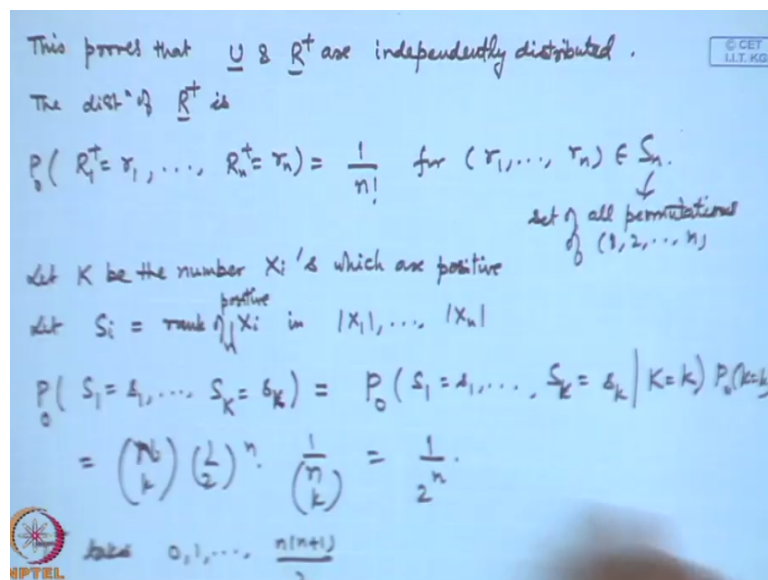 This proves that U & R⁺ are independently distributed.
© CET
I.I.T. KG
The distⁿ of R⁺ is
P₀( R₁⁺ = r₁, ..., Rₙ⁺ = rₙ) = 1/n! for (r₁, ..., rₙ) ∈ Sₙ.
↓
set of all permutations
of (1, 2, ..., n)
Let K be the number Xi's which are positive
positive
Let Si = rank of Xi in |X₁|, ..., |Xₙ|
P₀( S₁ = s₁, ..., S_K = s_k) = P₀( S₁ = s₁, ..., S_K = s_k | K = k) P₀(K=k
= (n k) (1/2)ⁿ · 1/(n k) = 1/2ⁿ.
takes 0, 1, ..., n(n+1)/2
NPTEL